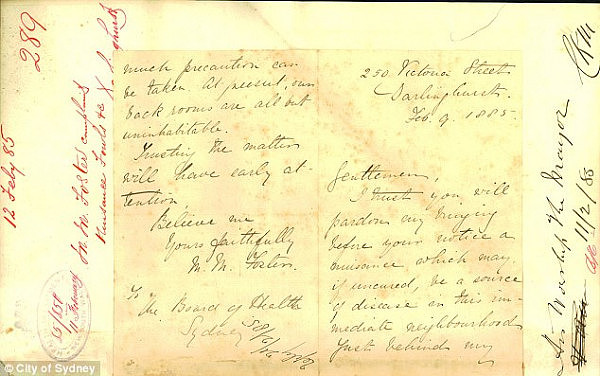 250 Victoria Street
Darlinghurst.
Feb. 9. 1885.
Gentlemen,
I trust you will
pardon my bringing
before your notice a
nuisance which may,
if uncured, be a source
of disease in this im-
mediate neighbourhood
Just behind my
much precaution can
be taken. At present, our
back rooms are all but
uninhabitable.
Trusting the matter
will have early at-
tention,
Believe me
Yours faithfully
M. M. Foster.
To
The Board of Health
Sydney
289
12 Feby 85
M. M. Foster complains
Nuisance Fowls &c
15/158
11 February
His Worship The Mayor
11/2/85
© City of Sydney